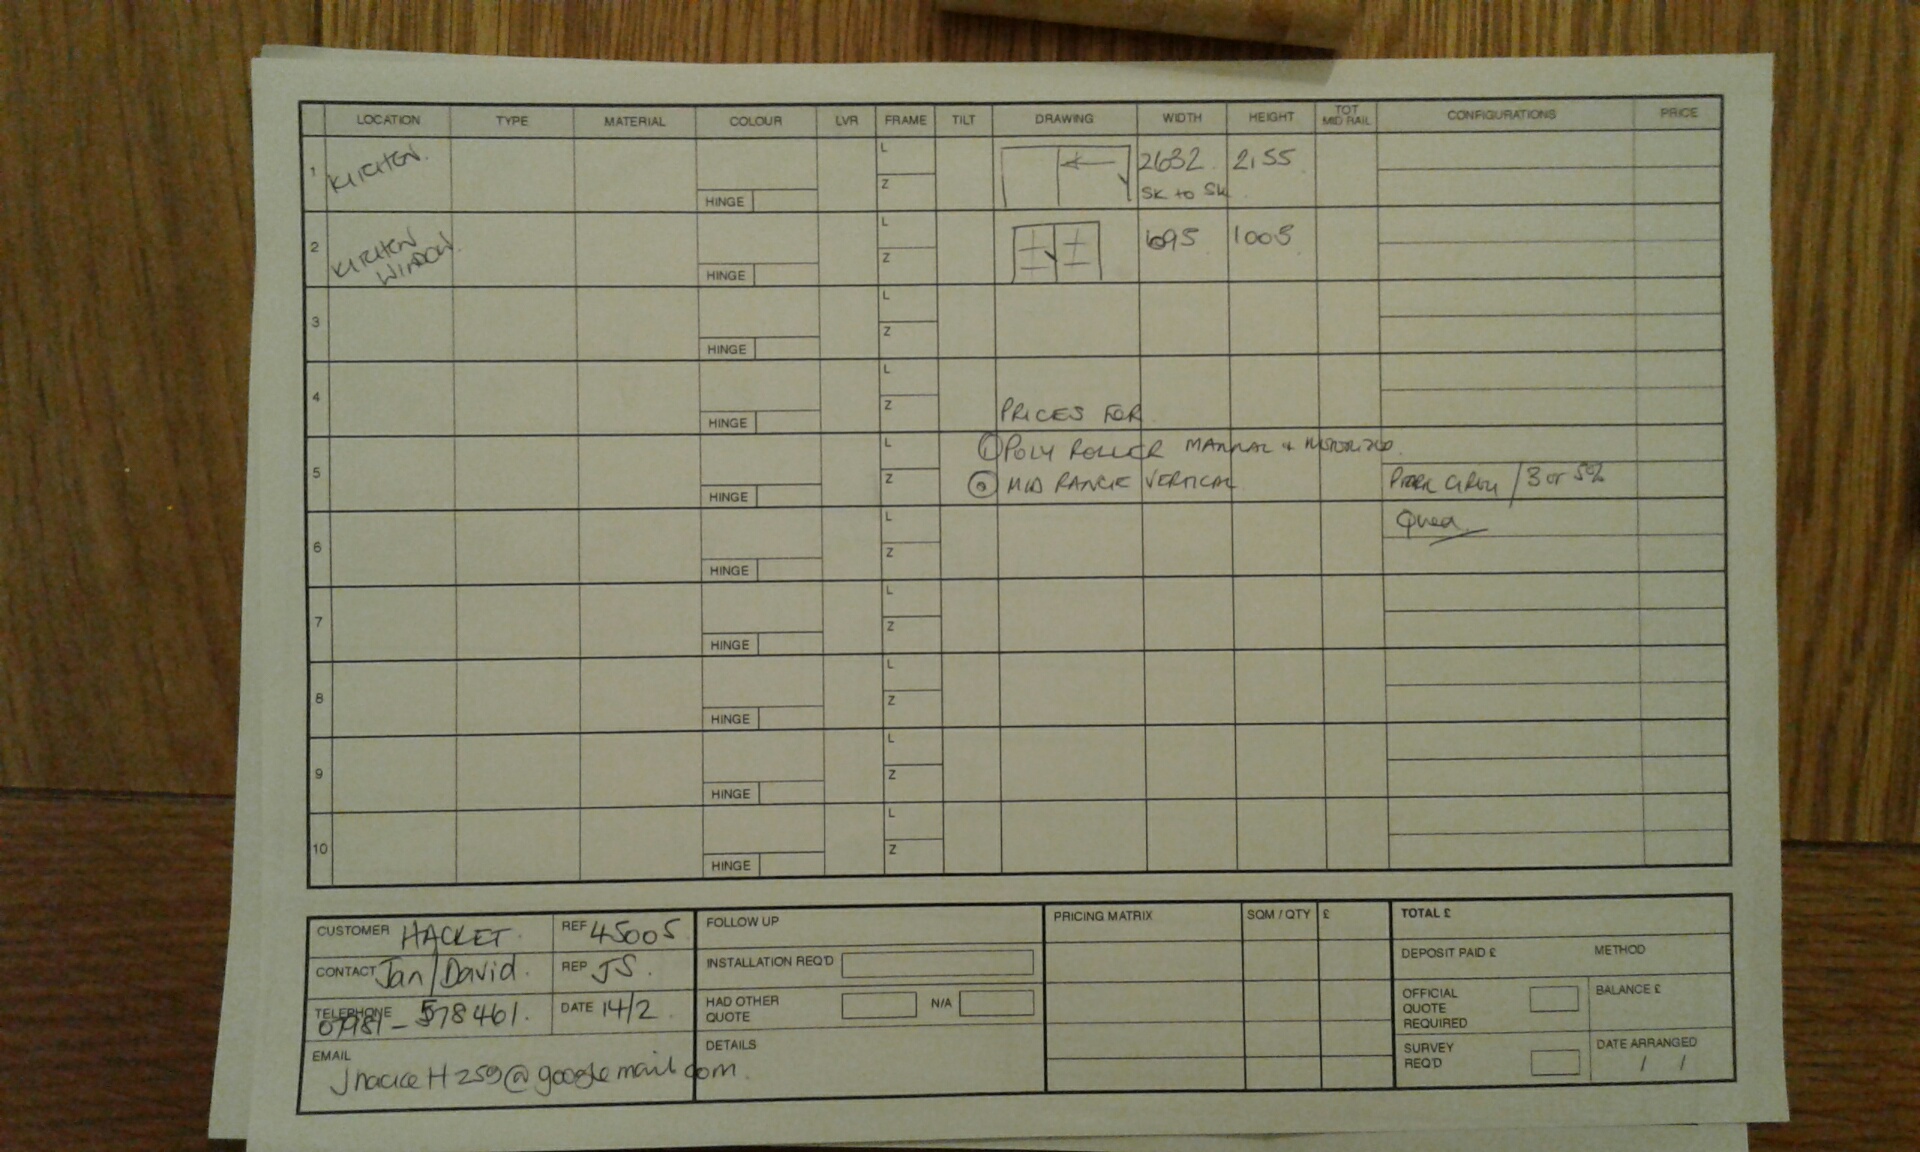 LOCATION TYPE MATERIAL COLOUR LVR FRAME TILT DRAWING WIDTH HEIGHT TOT MID RAIL CONFIGURATIONS PRICE
1 KITCHEN. HINGE L Z 2632 2155
SK to SK
2 KITCHEN WINDOW HINGE L Z 695 1005
3 HINGE L Z
4 HINGE L Z
PRICES FOR
5 HINGE L Z
① POLY ROLLER MANUAL + MOTORIZED.
MID RANGE VERTICAL / 3 or 5%
6 HINGE L Z
7 HINGE L Z
8 HINGE L Z
9 HINGE L Z
10 HINGE L Z
CUSTOMER HACKET. REF 45005
CONTACT Jan/David. REP JS.
TELEPHONE 07981-578461. DATE 14/2
EMAIL
@googlemail.com.
FOLLOW UP
INSTALLATION REQ'D
HAD OTHER QUOTE N/A
DETAILS
PRICING MATRIX SQM / QTY £
TOTAL £
DEPOSIT PAID £ METHOD
OFFICIAL QUOTE REQUIRED BALANCE £
SURVEY REQ'D DATE ARRANGED
/ /